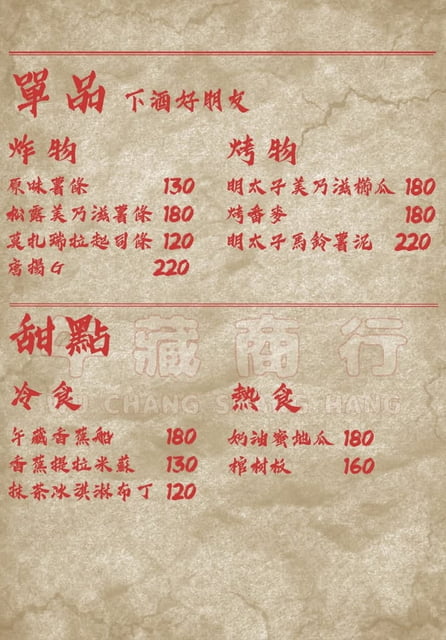 單品 下酒好朋友
炸物
原味薯條 130
松露美乃滋薯條 180
莫札瑞拉起司條 120
唐揚G 220
烤物
明太子美乃滋櫛瓜 180
烤香麥 180
明太子馬鈴薯泥 220
甜點
午藏商行
WU CHANG SHANG HANG
冷食
午藏香蕉船 180
香蕉提拉米蘇 130
抹茶冰淇淋布丁 120
熱食
奶油蜜地瓜 180
棺材板 160